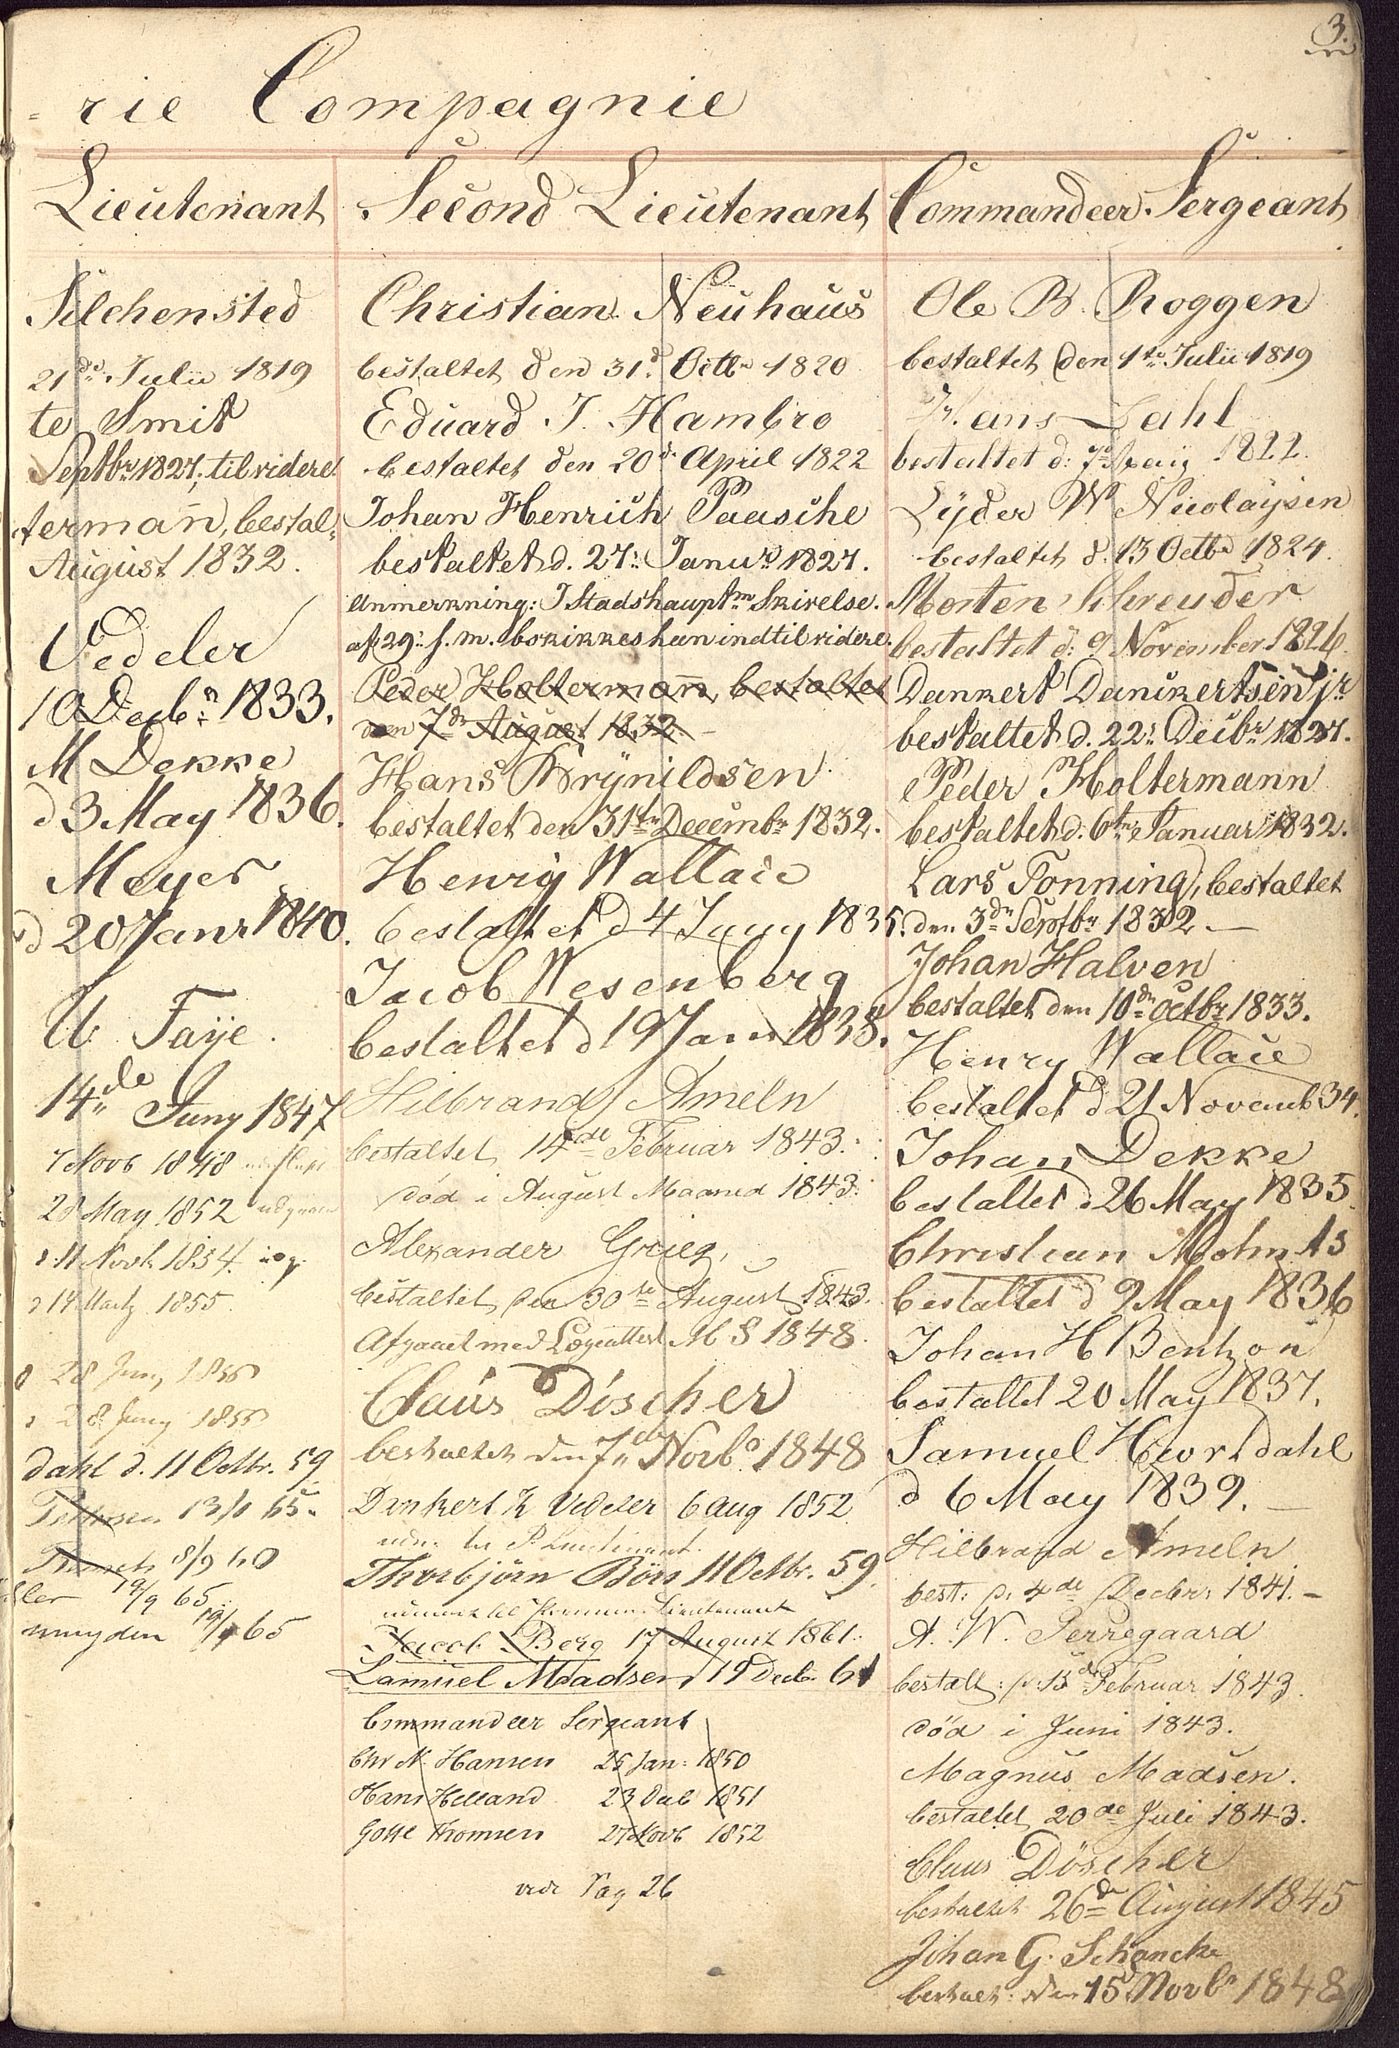 3.
-rie Compagnie
Lieutenant
Silchensted
21de Julii 1819
te Smit
Septbr 1827, til videre
terman̅, bestal-
August 1832.
Vedeler
10 Decbr 1833.
M Dekke
d 3 May 1836.
Meyer
d 20 Janr 1840.
U Faije.
14de Juny 1847
7 Novb 1848
28 May 1852
11 Novb 1854
14 Martz 1855.
28 Juny 1855
28 Juny 1855
dahl d. 11 Octbr. 59
13/1 65.
8/9 60
dler 19/9 65
muyden 19/9 65
Second Lieutenant
Christian Neuhaus
bestaltet den 31d. Octbr 1820
Eduard I. Hambro
bestaltet den 20de April 1822
Johan Henrich Paasche
bestaltet d. 27: Janur 1827.
Anmerkning: I Stadshauptm Skrivelse.
af 29: s. m. bortkikkes han indtil videre.
Peder Holtermann, bestaltet
den 7de August 1832. -
Hans Brynildsen
bestaltet den 31te Decembr 1832.
Henrij Wallace
bestaltet d 4 Juny 1835.
Jacob Wesenberg
bestaltet d 19 Janr 1838.
Hilbrand Ameln
bestaltet 14de Februar 1843.
død i August Maaned 1843.
Alexander Grieg,
bestaltet den 30te August 1843.
Afgaaet med Lægeattest M S 1848.
Claus Döscher
bestaltet den 7de Novbr 1848
Dankert K Vedeler 6 Aug 1852
udn. til P. Lieutenant.
Thorbjörn Börs 11 Octbr. 59.
udnævnt til Premier Lieutenant
Jacob Berg 17 August 1861.
Samuel Madsen 19 Decb. 61
Commandeer Sergeant
Chr N. Hansen 25 Jan: 1850
Hans Helland 23 Decb 1851
Thomsen 27 Novb 1852
vide Pag 26
Commandeer Sergeant
Ole B. Roggen
bestaltet den 1te Julii 1819
Hans Dahl
bestaltet d: 7de Maij 1822.
Lyder W Nicolaysen
bestaltet d. 13 Octbr 1824.
Morten Schreuder
bestaltet d: 9 November 1826.
Dankert Danckertsen jr
bestaltet d. 22: Decbr 1827.
Peder Holtermann
bestaltet d. 6te Januar 1832.
Lars Fonning, bestaltet
den 3de Septbr 1832. —
Johan Halven
bestaltet den 10de Octbr 1833.
Henry Wallace
bestaltet d 21 Novemb 34.
Johan Dekke
bestaltet d 26 May 1835.
Christian Mohn As
bestaltet d 9 May 1836
Johan H Bentzon
bestaltet 20 May 1837.
Samuel Hiortdahl
d 6 May 1839. —
Hilbrand Ameln
best: d: 4de Decbr: 1841. -
A. W. Perregaard
bestalt: d: 15de Februar 1843.
død i Juni 1843.
Magnus Madsen.
bestaltet 20de Juli 1843.
Claus Döscher
bestaltet 26de August 1845
Johan G. Schancke
bestalt: den 15 Novbr 1848